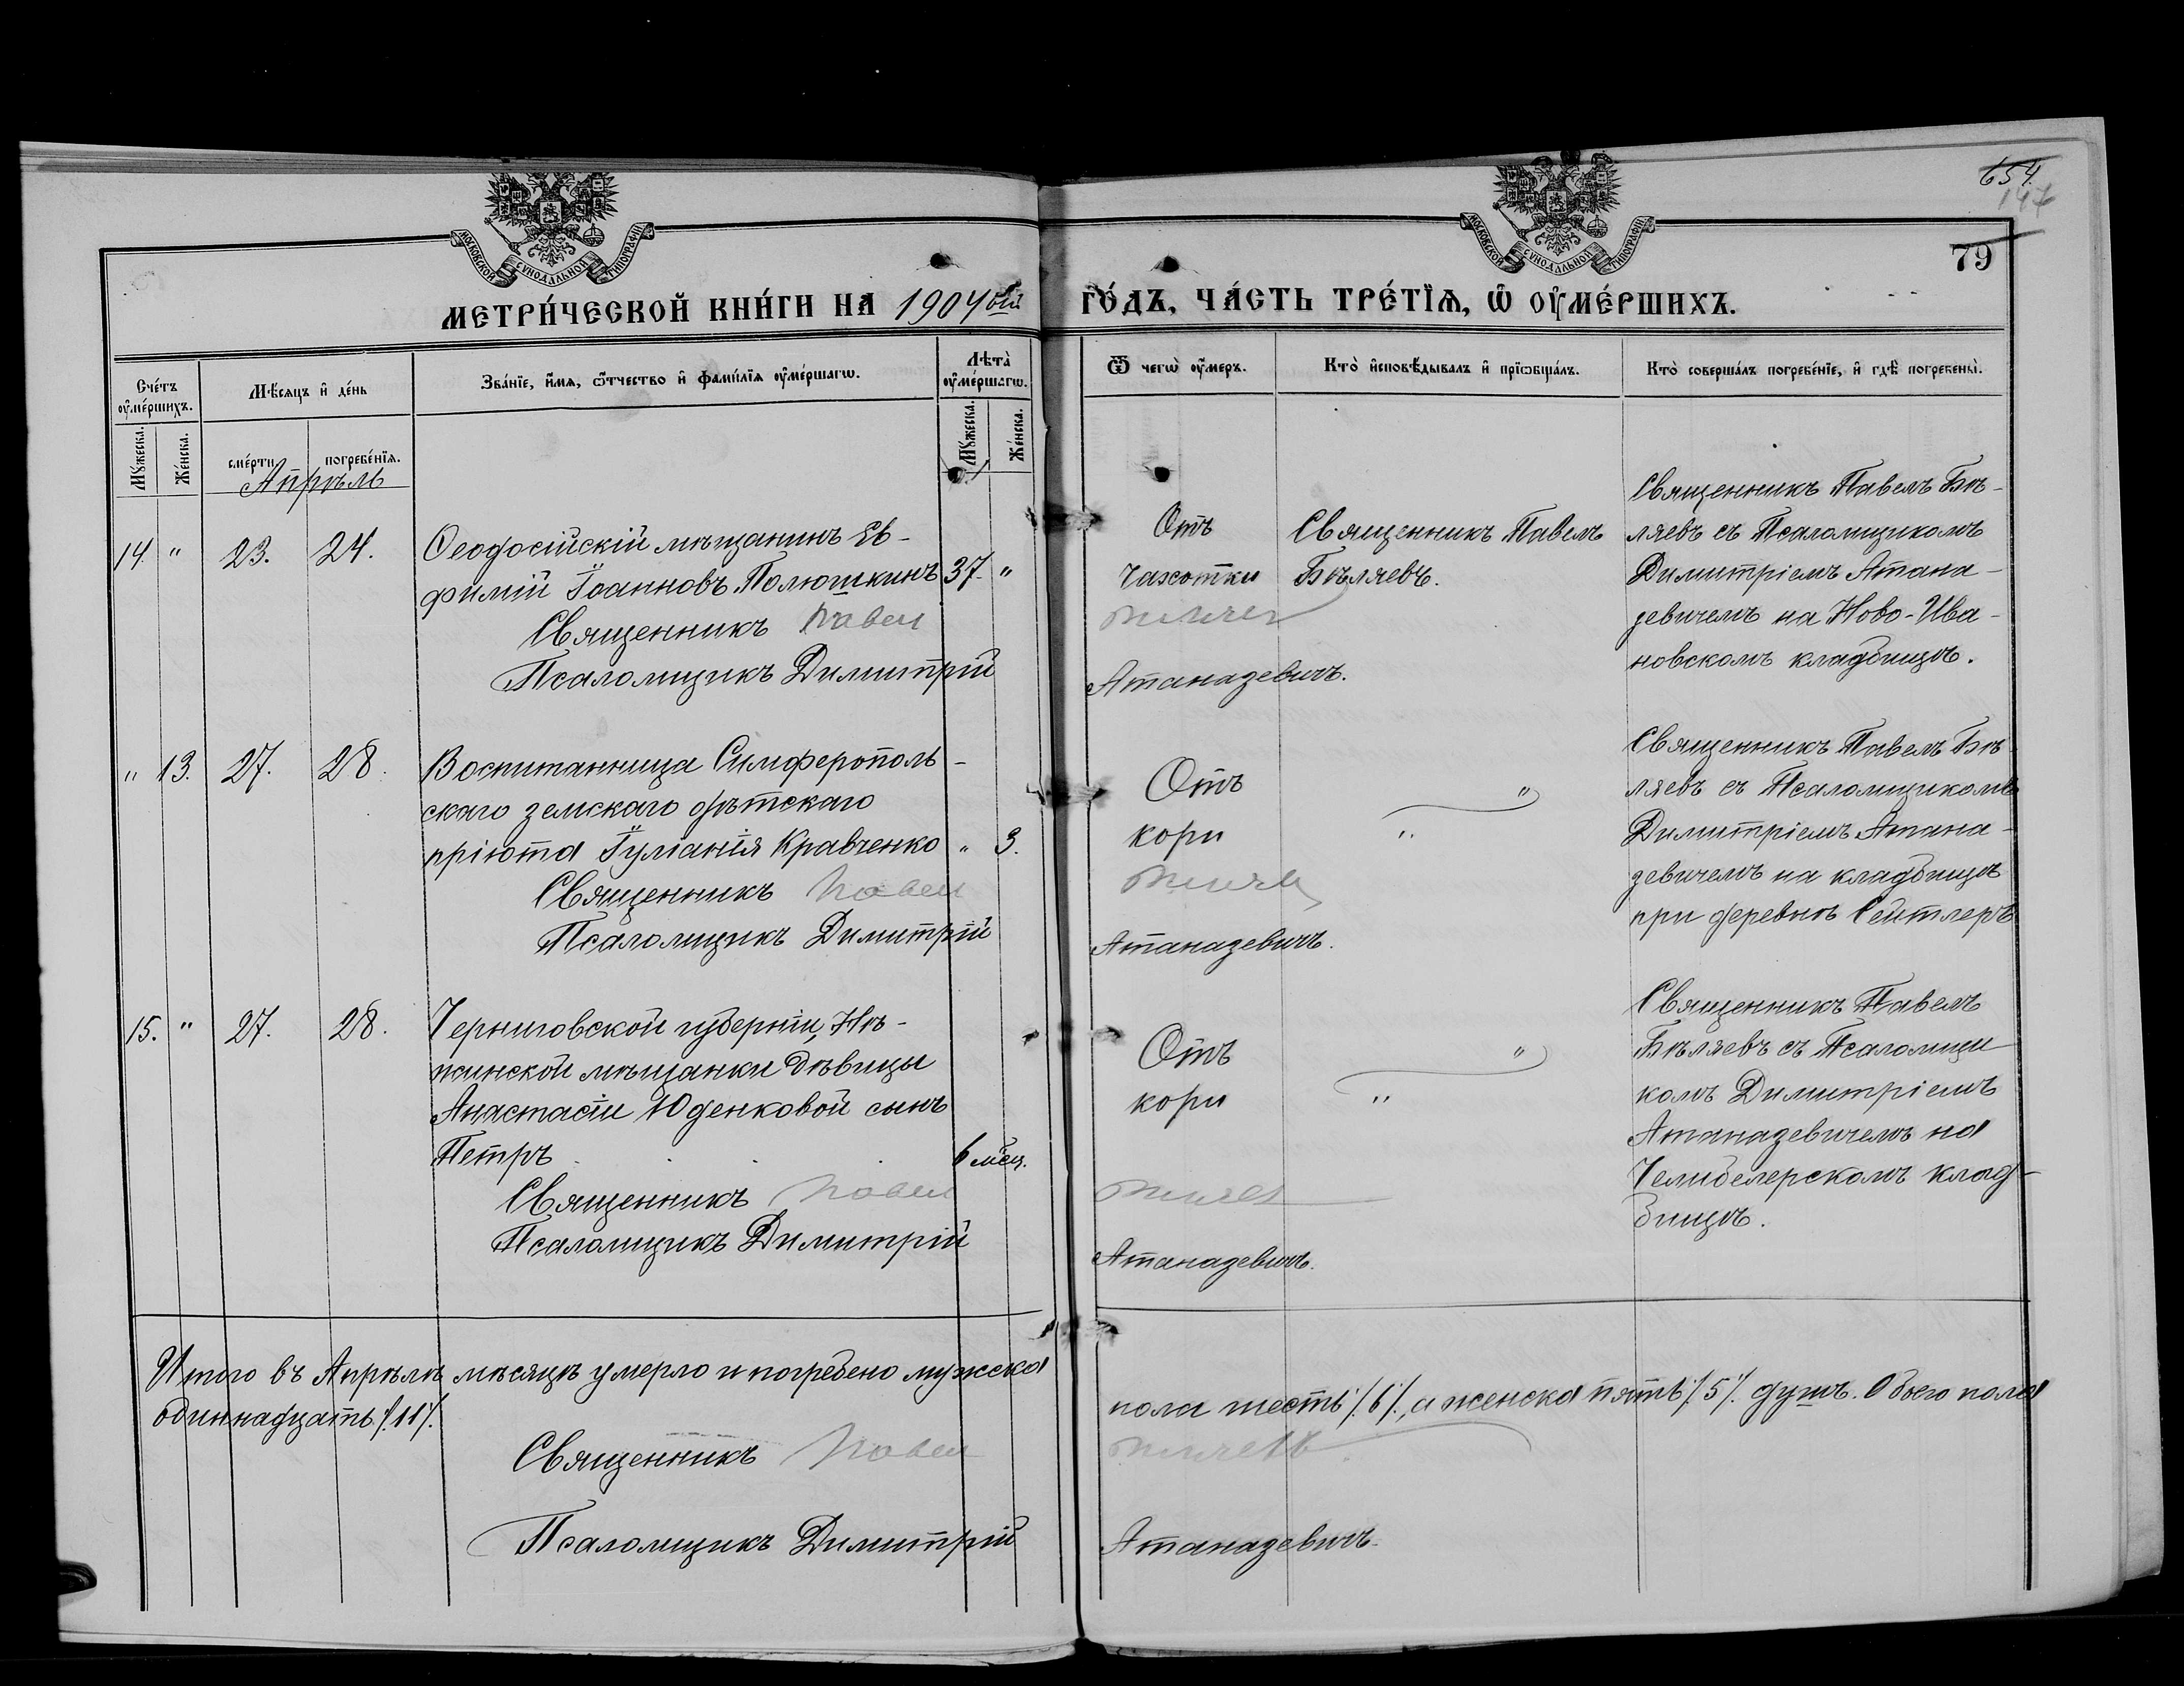 654.
147
79
МОСКОВСКОЙ СѴНОДАЛЬНОЙ ТИПОГРАФІИ
МОСКОВСКОЙ СѴНОДАЛЬНОЙ ТИПОГРАФІИ
МЕТРИ́ЧЕСКОЙ КНИ́ГИ НА 1904ый ГО́ДЪ, ЧА́СТЬ ТРЕ́ТІѦ, Ѡ ОУ҆МЕ́РШИХЪ.
Счéтъ оу҆мéршихъ.
Мѣ́сѧцъ и҆ дéнь
Звáнїе, и҆́мѧ, ѻ҆́тчество и҆ фами́лїѧ оу҆мéршагѡ.
Лѣта̀ оу҆мéршагѡ.
Ѿ чегѡ̀ оу҆́меръ.
Кто̀ и҆сповѣ́дывалъ и҆ прїѡбщáлъ.
Кто̀ совершáлъ погребéнїе, и҆ гдѣ̀ погребены̀.
Мꙋ́жеска.
Жéнска.
смéрти.
погребéнїѧ.
Мꙋ́жеска.
Жéнска.
Апрѣль
14. " 23. 24. Ѳеодосійскій мѣщанинъ Ев-
фимій Іоанновъ Полюшкинъ 37. "
Священникъ Павел
Псаломщикъ Димитрій Атаназевичъ.
Отъ
чахотки
Священникъ Павелъ
Бѣляевъ.
Священникъ Павелъ Бѣ-
ляевъ съ Псаломщикомъ
Димитріемъ Атана-
зевичемъ на Ново-Ива-
новскомъ кладбищѣ.
" 13. 27. 28. Воспитанница Симферополь-
скаго земскаго дѣтскаго
пріюта Іуліанія Кравченко " 3.
Священникъ Павел
Псаломщикъ Димитрій Атаназевичъ.
Отъ "
кори "
Священникъ Павелъ Бѣ-
ляевъ съ Псаломщикомъ
Димитріемъ Атана-
зевичемъ на кладбищѣ
при деревнѣ Сеитлеръ
15. " 27. 28. Черниговской губерніи, Нѣ-
жинской мѣщанки дѣвицы
Анастасіи Юденковой сынъ
Петръ . . . 6 мѣц.
Священникъ Павел
Псаломщикъ Димитрій Атаназевичъ.
Отъ "
кори "
Священникъ Павелъ
Бѣляевъ съ Псаломщи-
комъ Димитріемъ
Атаназевичемъ на
Челибелерскомъ клад-
бищѣ.
Итого въ Апрѣлѣ мѣсяцѣ умерло и погребено мужска пола шесть /.6/., а женска пять /.5/. душъ. Обоего пола
одиннадцать /.11/.
Священникъ Павел
Псаломщикъ Димитрій Атаназевичъ.